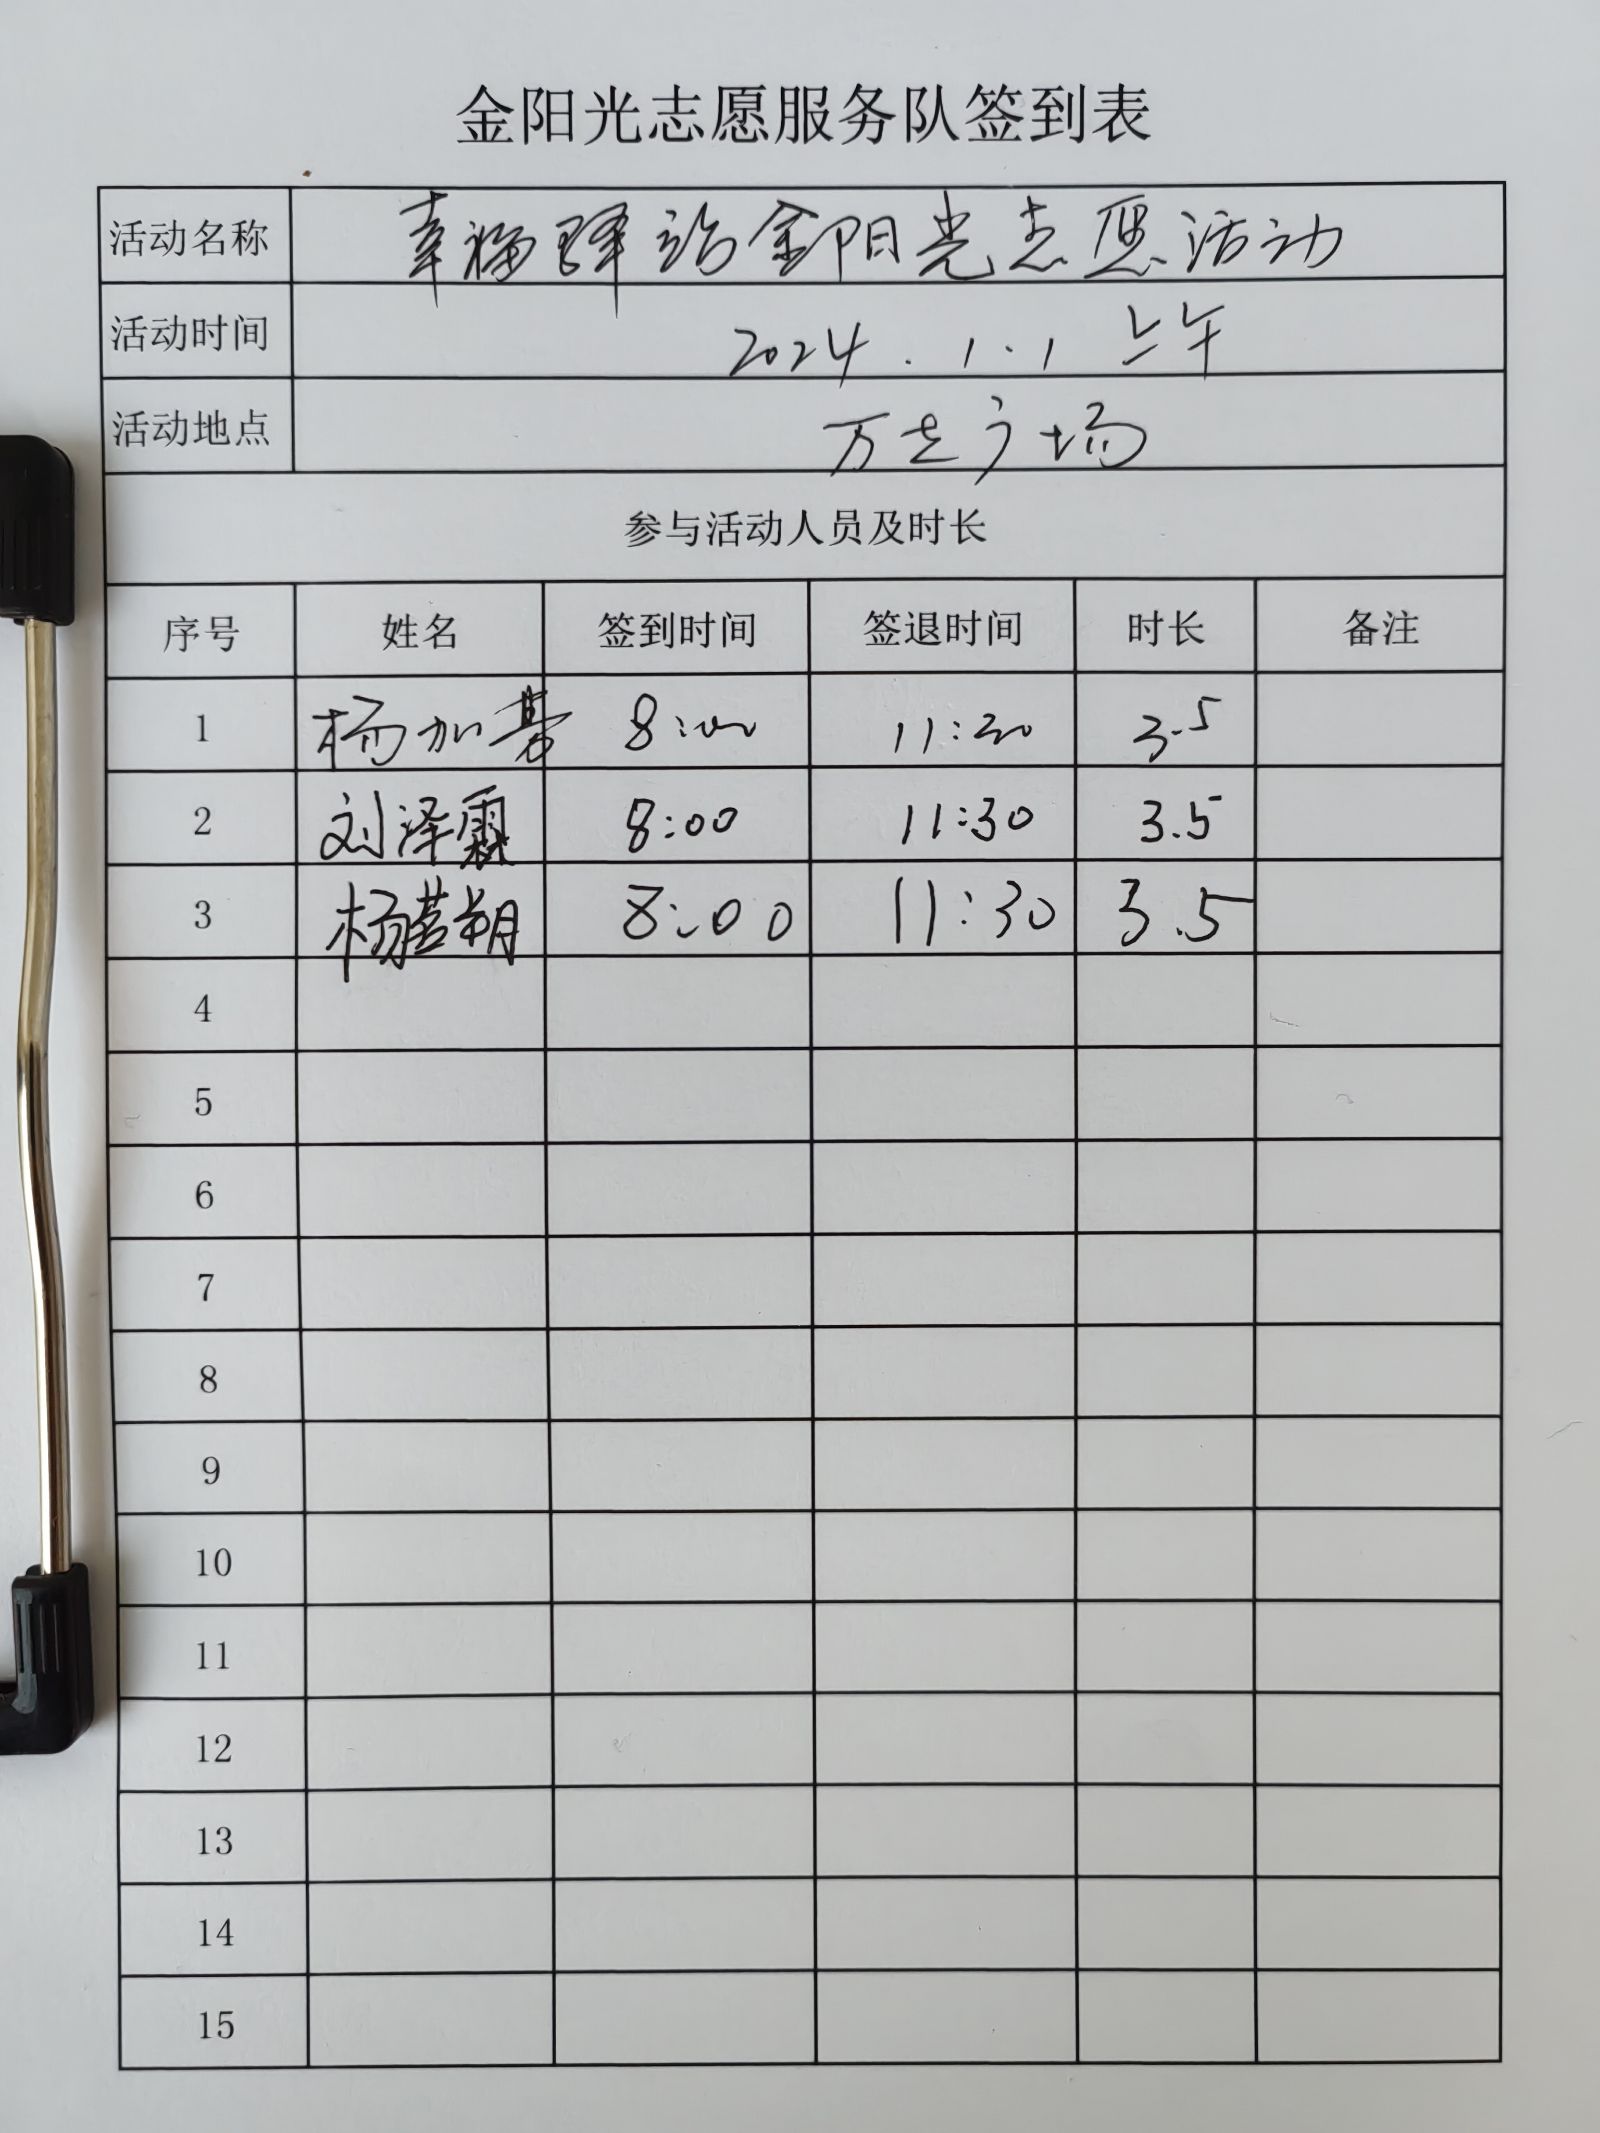 金阳光志愿服务队签到表
活动名称 幸福驿站金阳光志愿活动
活动时间 2024.1.1 上午
活动地点 万达广场
参与活动人员及时长
序号 姓名 签到时间 签退时间 时长 备注
1 杨加 8:00 11:30 3.5
2 刘泽霖 8:00 11:30 3.5
3 杨 朔 8:00 11:30 3.5
4
5
6
7
8
9
10
11
12
13
14
15